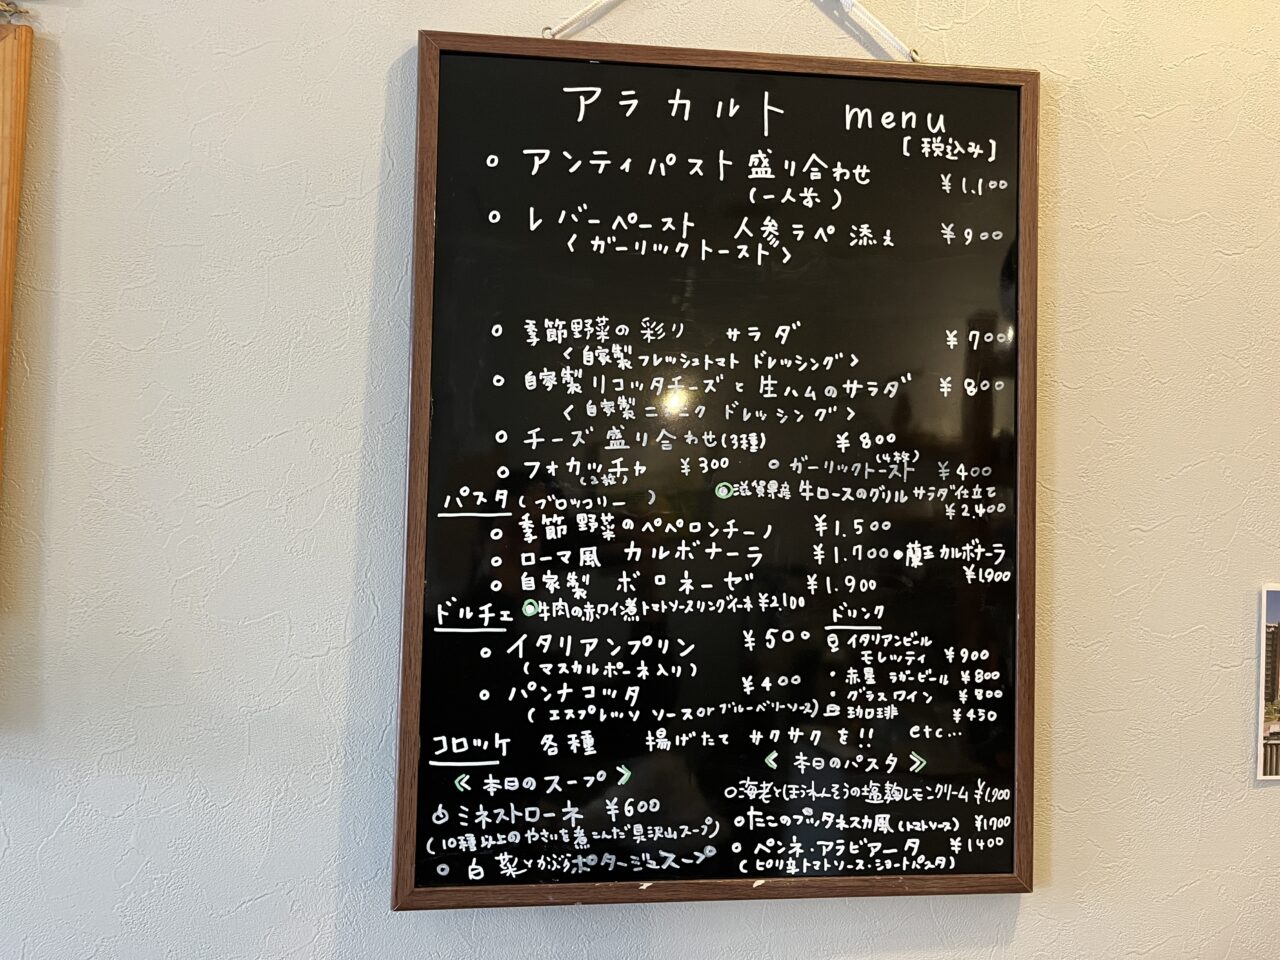 アラカルト menu
[税込み]
○ アンティパスト 盛り合わせ ¥1.100
(一人前)
○ レバーペースト 人参ラペ 添え ¥900
<ガーリックトースト>
○ 季節野菜の彩り サラダ ¥700
<自家製フレッシュトマト ドレッシング>
○ 自家製リコッタチーズと生ハムのサラダ ¥800
<自家製ニンニク ドレッシング>
○ チーズ 盛り合わせ(3種) ¥800
○ フォカッチャ ¥300 ○ ガーリックトースト ¥400
(2枚) (4枚)
◎滋賀県産 牛ロースのグリル サラダ仕立て
¥2.400
パスタ (ブロッコリー )
○ 季節野菜のペペロンチーノ ¥1.500
○ ローマ風 カルボナーラ ¥1.700 ○蘭王カルボナーラ
¥1900
○ 自家製 ボロネーゼ ¥1.900
◎牛肉の赤ワイン煮トマトソースリングイーネ ¥2.100
ドルチェ
○ イタリアンプリン ¥500
(マスカルポーネ入り)
○ パンナコッタ ¥400
(エスプレッソ ソース or ブルーベリーソース)
ドリンク
イタリアンビール
モレッティ ¥900
・赤星 ラガービール ¥800
・グラスワイン ¥800
珈琲 ¥450
etc...
コロッケ 各種 揚げたて サクサク を!!
《本日のスープ》
○ ミネストローネ ¥600
(10種以上のやさいを煮こんだ具沢山スープ)
○ 白菜とかぶらポタージュスープ
《本日のパスタ》
○海老とほうれんそうの塩麹レモンクリーム ¥1,900
○たこのプッタネスカ風(トマトソース) ¥1700
○ ペンネ・アラビアータ ¥1400
(ピリ辛トマトソース・ショートパスタ)